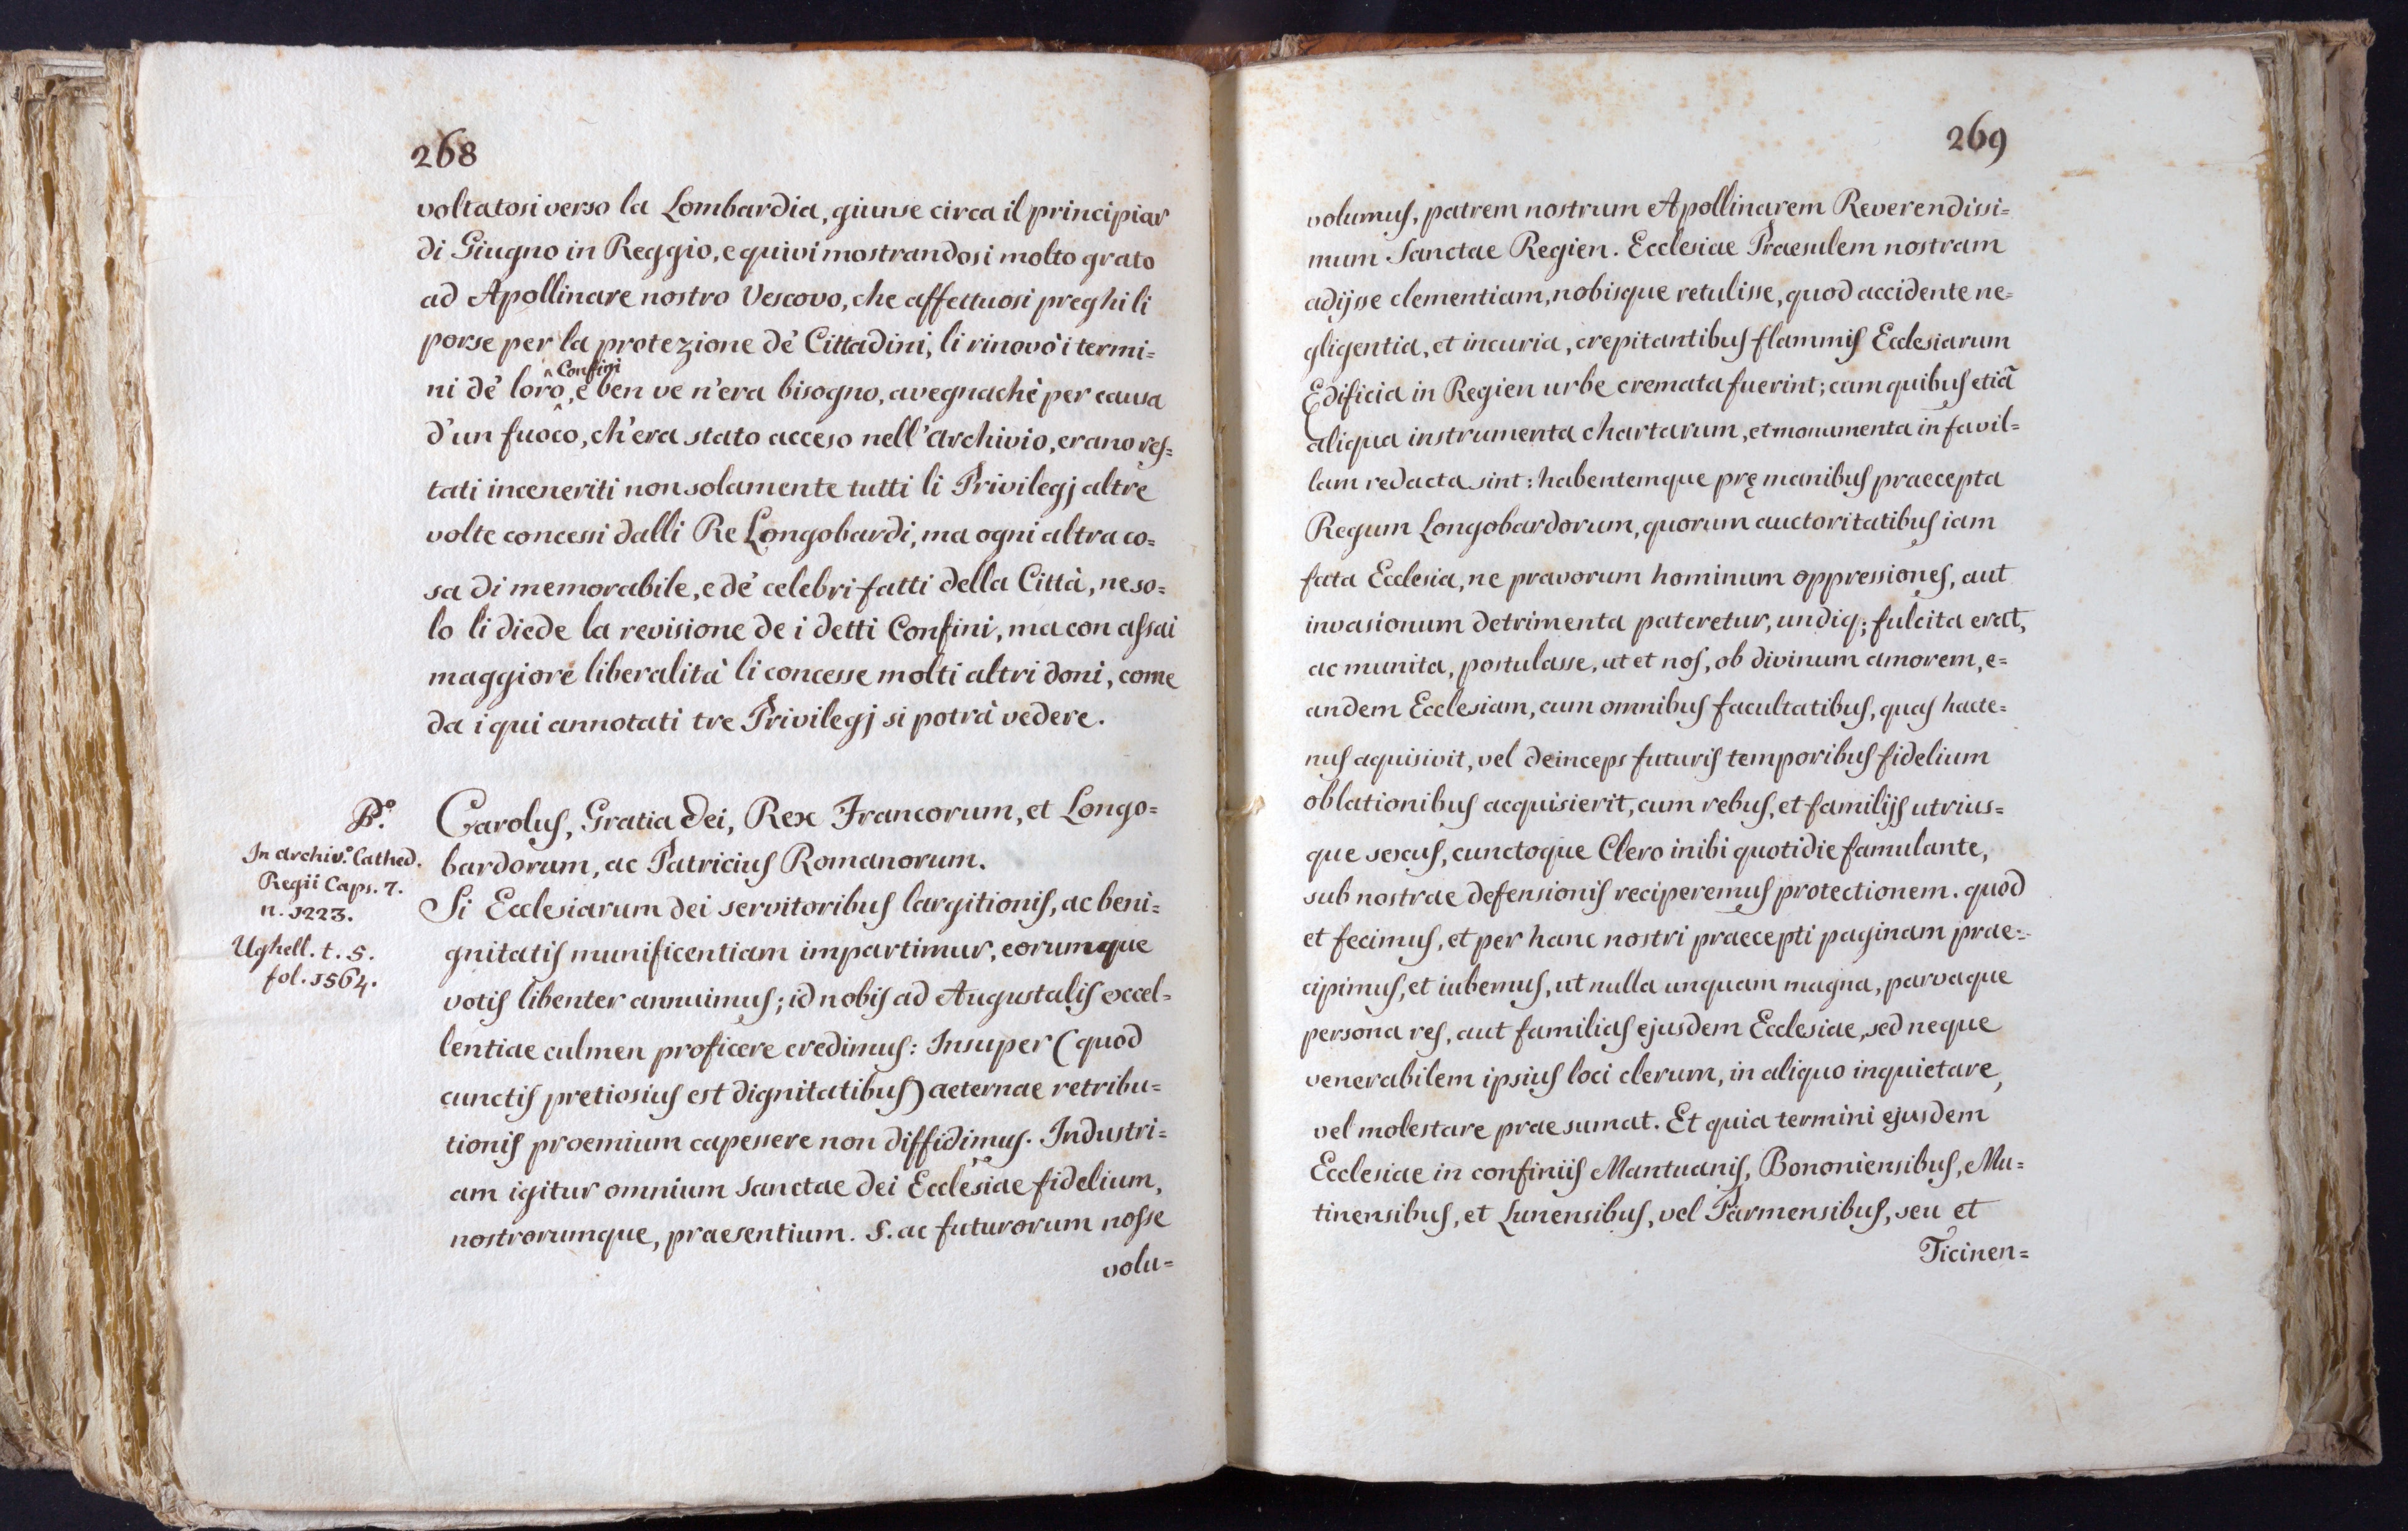 268
voltatosi verso la Lombardia, giunse circa il principiar
di Giugno in Reggio, e quivi mostrandosi molto grato
ad Apollinare nostro Vescovo, che affettuosi preghi li
porse per la protezione dè Cittadini, li rinovò i termi=
Confini
ni dè loro, e ben ve n'era bisogno, avegnachè per causa
d'un fuoco, ch'era stato acceso nell'Archivio, erano res=
tati inceneriti non solamente tutti li Privilegj altre
volte concessi dalli Re Longobardi, ma ogni altra co=
sa di memorabile, e dè celebri fatti della Città, ne so=
lo li diede la revisione de i detti Confini, ma con assai
maggiore liberalità li concesse molti altri doni, come
da i qui annotati tre Privilegj si potrà vedere.
P.º
In archiv.º Cathed.
Regii Caps. 7.
n. 1223.
Ughell. t. 5.
fol. 1564.
Carolus, Gratia Dei, Rex Francorum, et Longo=
bardorum, ac Patricius Romanorum.
Si Ecclesiarum dei servitoribus largitionis, ac beni=
gnitatis munificentiam impartimur, eorumque
votis libenter annuimus; id nobis ad Augustalis excel=
lentiae culmen proficere credimus: Insuper (quod
cunctis pretiosius est dignitatibus) aeternae retribu=
tionis proemium capessere non diffidimus. Industri=
am igitur omnium Sanctae Dei Ecclesiae fidelium,
nostrorumque, praesentium. S. ac futurorum nosse
volu=
269
volumus, patrem nostrum Apollinarem Reverendissi=
mum Sanctae Regien. Ecclesiae Praesulem nostram
adijsse clementiam, nobisque retulisse, quod accidente ne=
gligentia, et incuria, crepitantibus flammis Ecclesiarum
Edificia in Regien urbe cremata fuerint; cum quibus etiã
aliqua instrumenta chartarum, et monumenta in favil=
lam redacta sint: habentemque prę manibus praecepta
Regum Longobardorum, quorum auctoritatibus iam
fata Ecclesia, ne pravorum hominum oppressiones, aut
invasionum detrimenta pateretur, undiq; fulcita erat,
ac munita, postulasse, ut et nos, ob divinum amorem, e=
andem Ecclesiam, cum omnibus facultatibus, quas hacte=
nus aquisivit, vel deinceps futuris temporibus fidelium
oblationibus acquisierit, cum rebus, et familijs utrius=
que sexus, cunctoque Clero inibi quotidie famulante,
sub nostrae defensionis reciperemus protectionem. quod
et fecimus, et per hanc nostri praecepti paginam prae=
cipimus, et iubemus, ut nulla unquam magna, parvaque
persona res, aut familias ejusdem Ecclesiae, sed neque
venerabilem ipsius loci clerum, in aliquo inquietare,
vel molestare praesumat. Et quia termini ejusdem
Ecclesiae in confiniis Mantuanis, Bononiensibus, Mu=
tinensibus, et Lunensibus, vel Parmensibus, seu et
Ticinen=